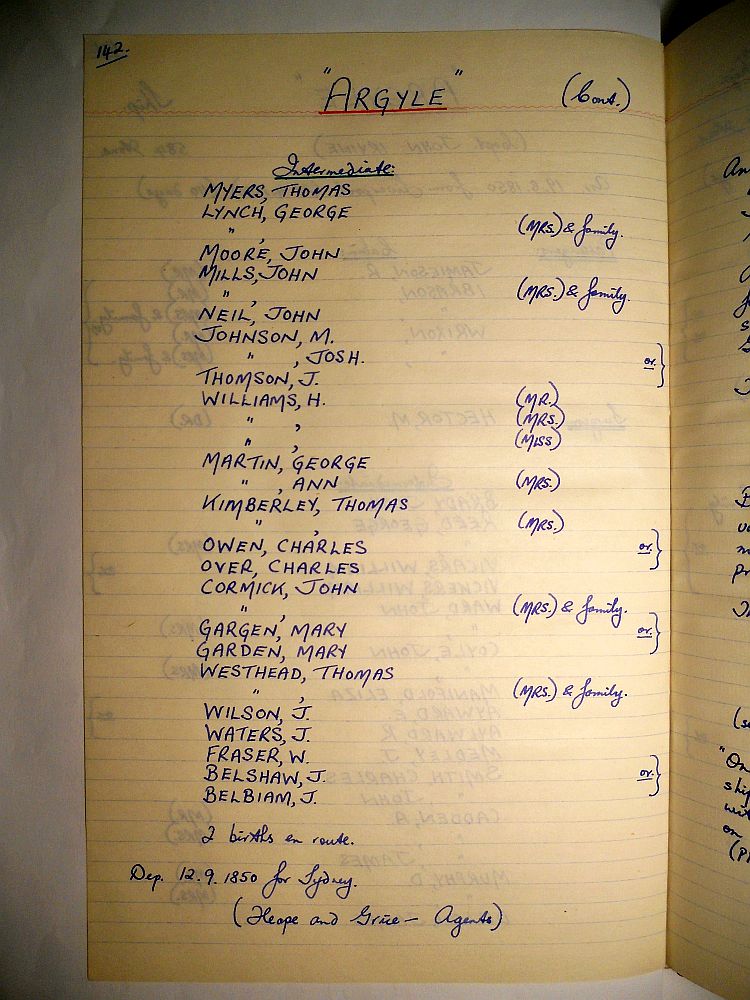 142.
"ARGYLE" (Cont.)
Intermediate:
MYERS, THOMAS
LYNCH, GEORGE
" , (MRS.) & family.
MOORE, JOHN
MILLS, JOHN
" , (MRS.) & family.
NEIL, JOHN
JOHNSON, M.
" , JOSH. or }
THOMSON, J.
WILLIAMS, H. (MR.)
" , (MRS.)
" , (MISS)
MARTIN, GEORGE
" , ANN (MRS.)
KIMBERLEY, THOMAS
" , (MRS.)
OWEN, CHARLES or }
OVER, CHARLES
CORMICK, JOHN
" , (MRS.) & family.
GARGEN, MARY or }
GARDEN, MARY
WESTHEAD, THOMAS
" , (MRS.) & family.
WILSON, J.
WATERS, J.
FRASER, W.
BELSHAW, J. or }
BELBIAM, J.
2 births en route.
Dep. 12.9.1850 for Sydney.
(Heape and Grüe — Agents)